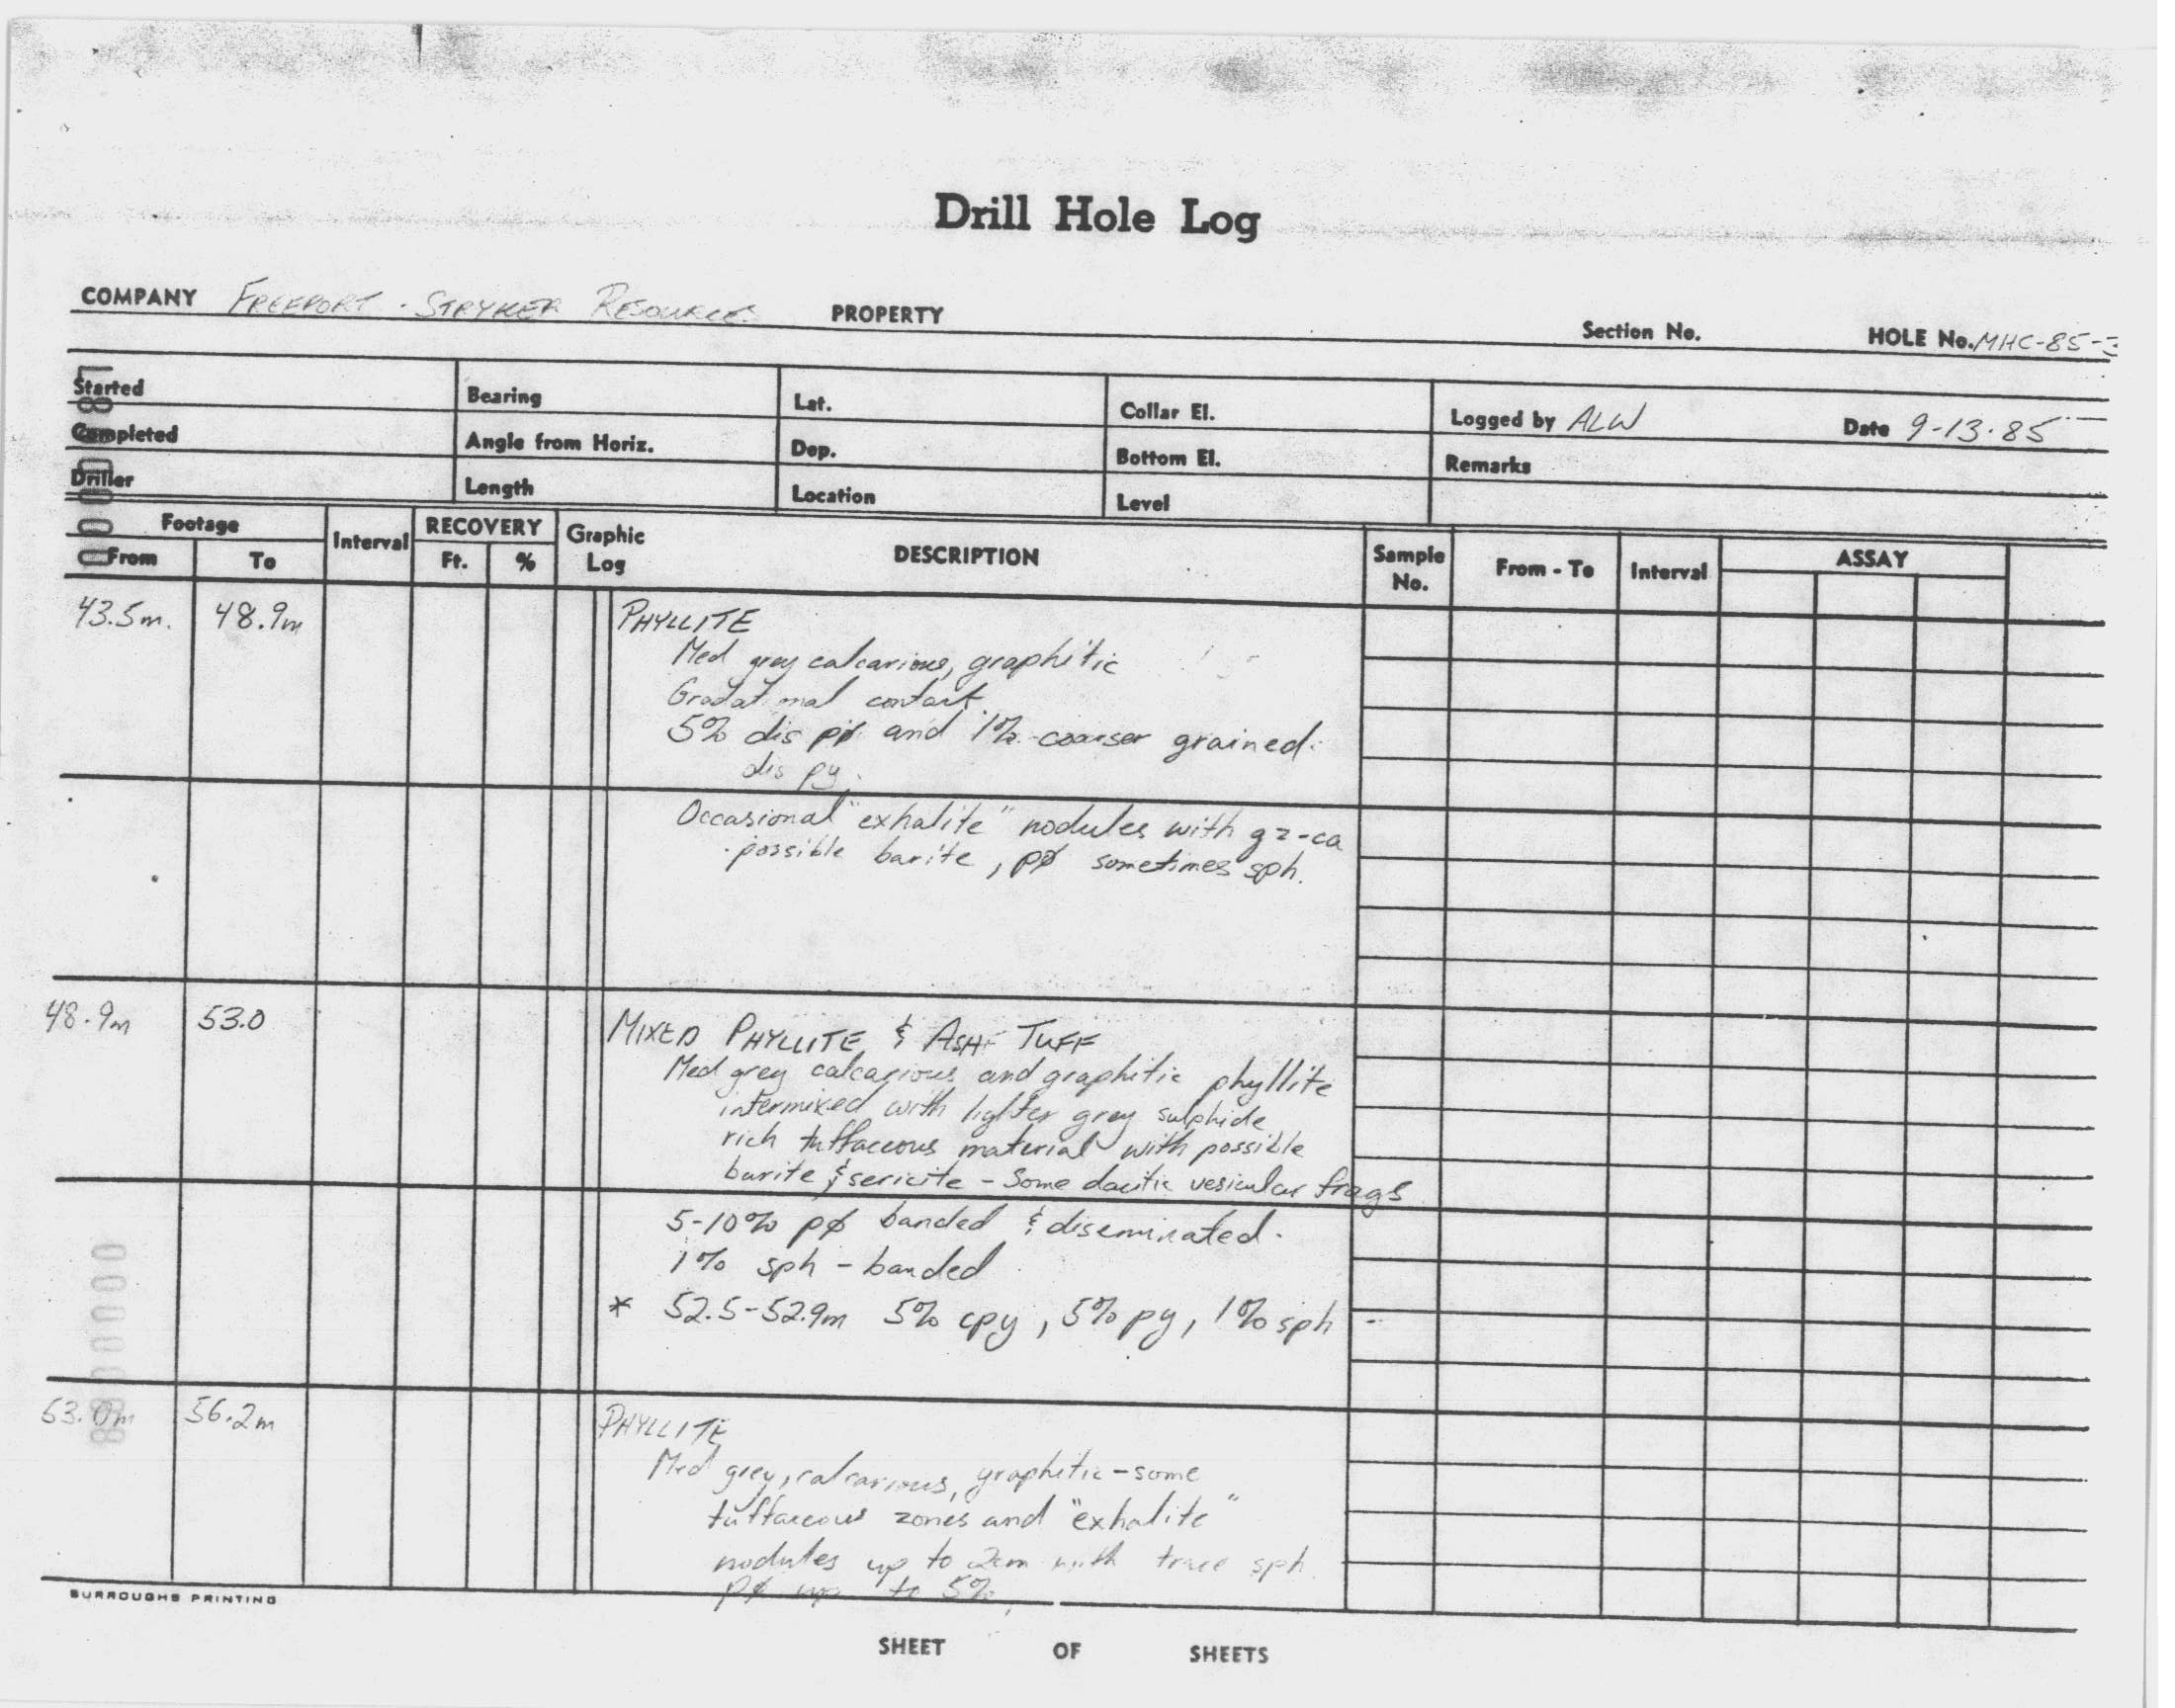 Drill Hole Log
COMPANY FREEPORT - STRYKER RESOURCES PROPERTY Section No. HOLE No. MHC-85-3
Started Bearing Lat. Collar El. Logged by ALW Date 9-13-85
Completed Angle from Horiz. Dep. Bottom El. Remarks
Driller Length Location Level
Footage Interval RECOVERY Graphic Log DESCRIPTION Sample No. From - To Interval ASSAY
From To Ft. %
43.5m. 48.9m PHYLLITE
Med grey calcarious, graphitic
Gradational contact.
5% dis pø and 1% coarser grained
dis py.
Occasional "exhalite" nodules with qz-ca
possible barite, pø sometimes sph.
48.9m 53.0 MIXED PHYLLITE & ASH TUFF
Med grey calcarious and graphitic phyllite
intermixed with lighter grey sulphide
rich tuffaceous material with possible
barite & sericite - Some dacitic vesicular frags
5-10% pø banded & diseminated.
1% sph - banded
* 52.5-52.9m 5% cpy, 5% py, 1% sph
53.0m 56.2m PHYLLITE
Med grey, calcarious, graphitic - some
tuffaceous zones and "exhalite"
nodules up to 2cm with trace sph.
pø up to 5%
BURROUGHS PRINTING
SHEET OF SHEETS